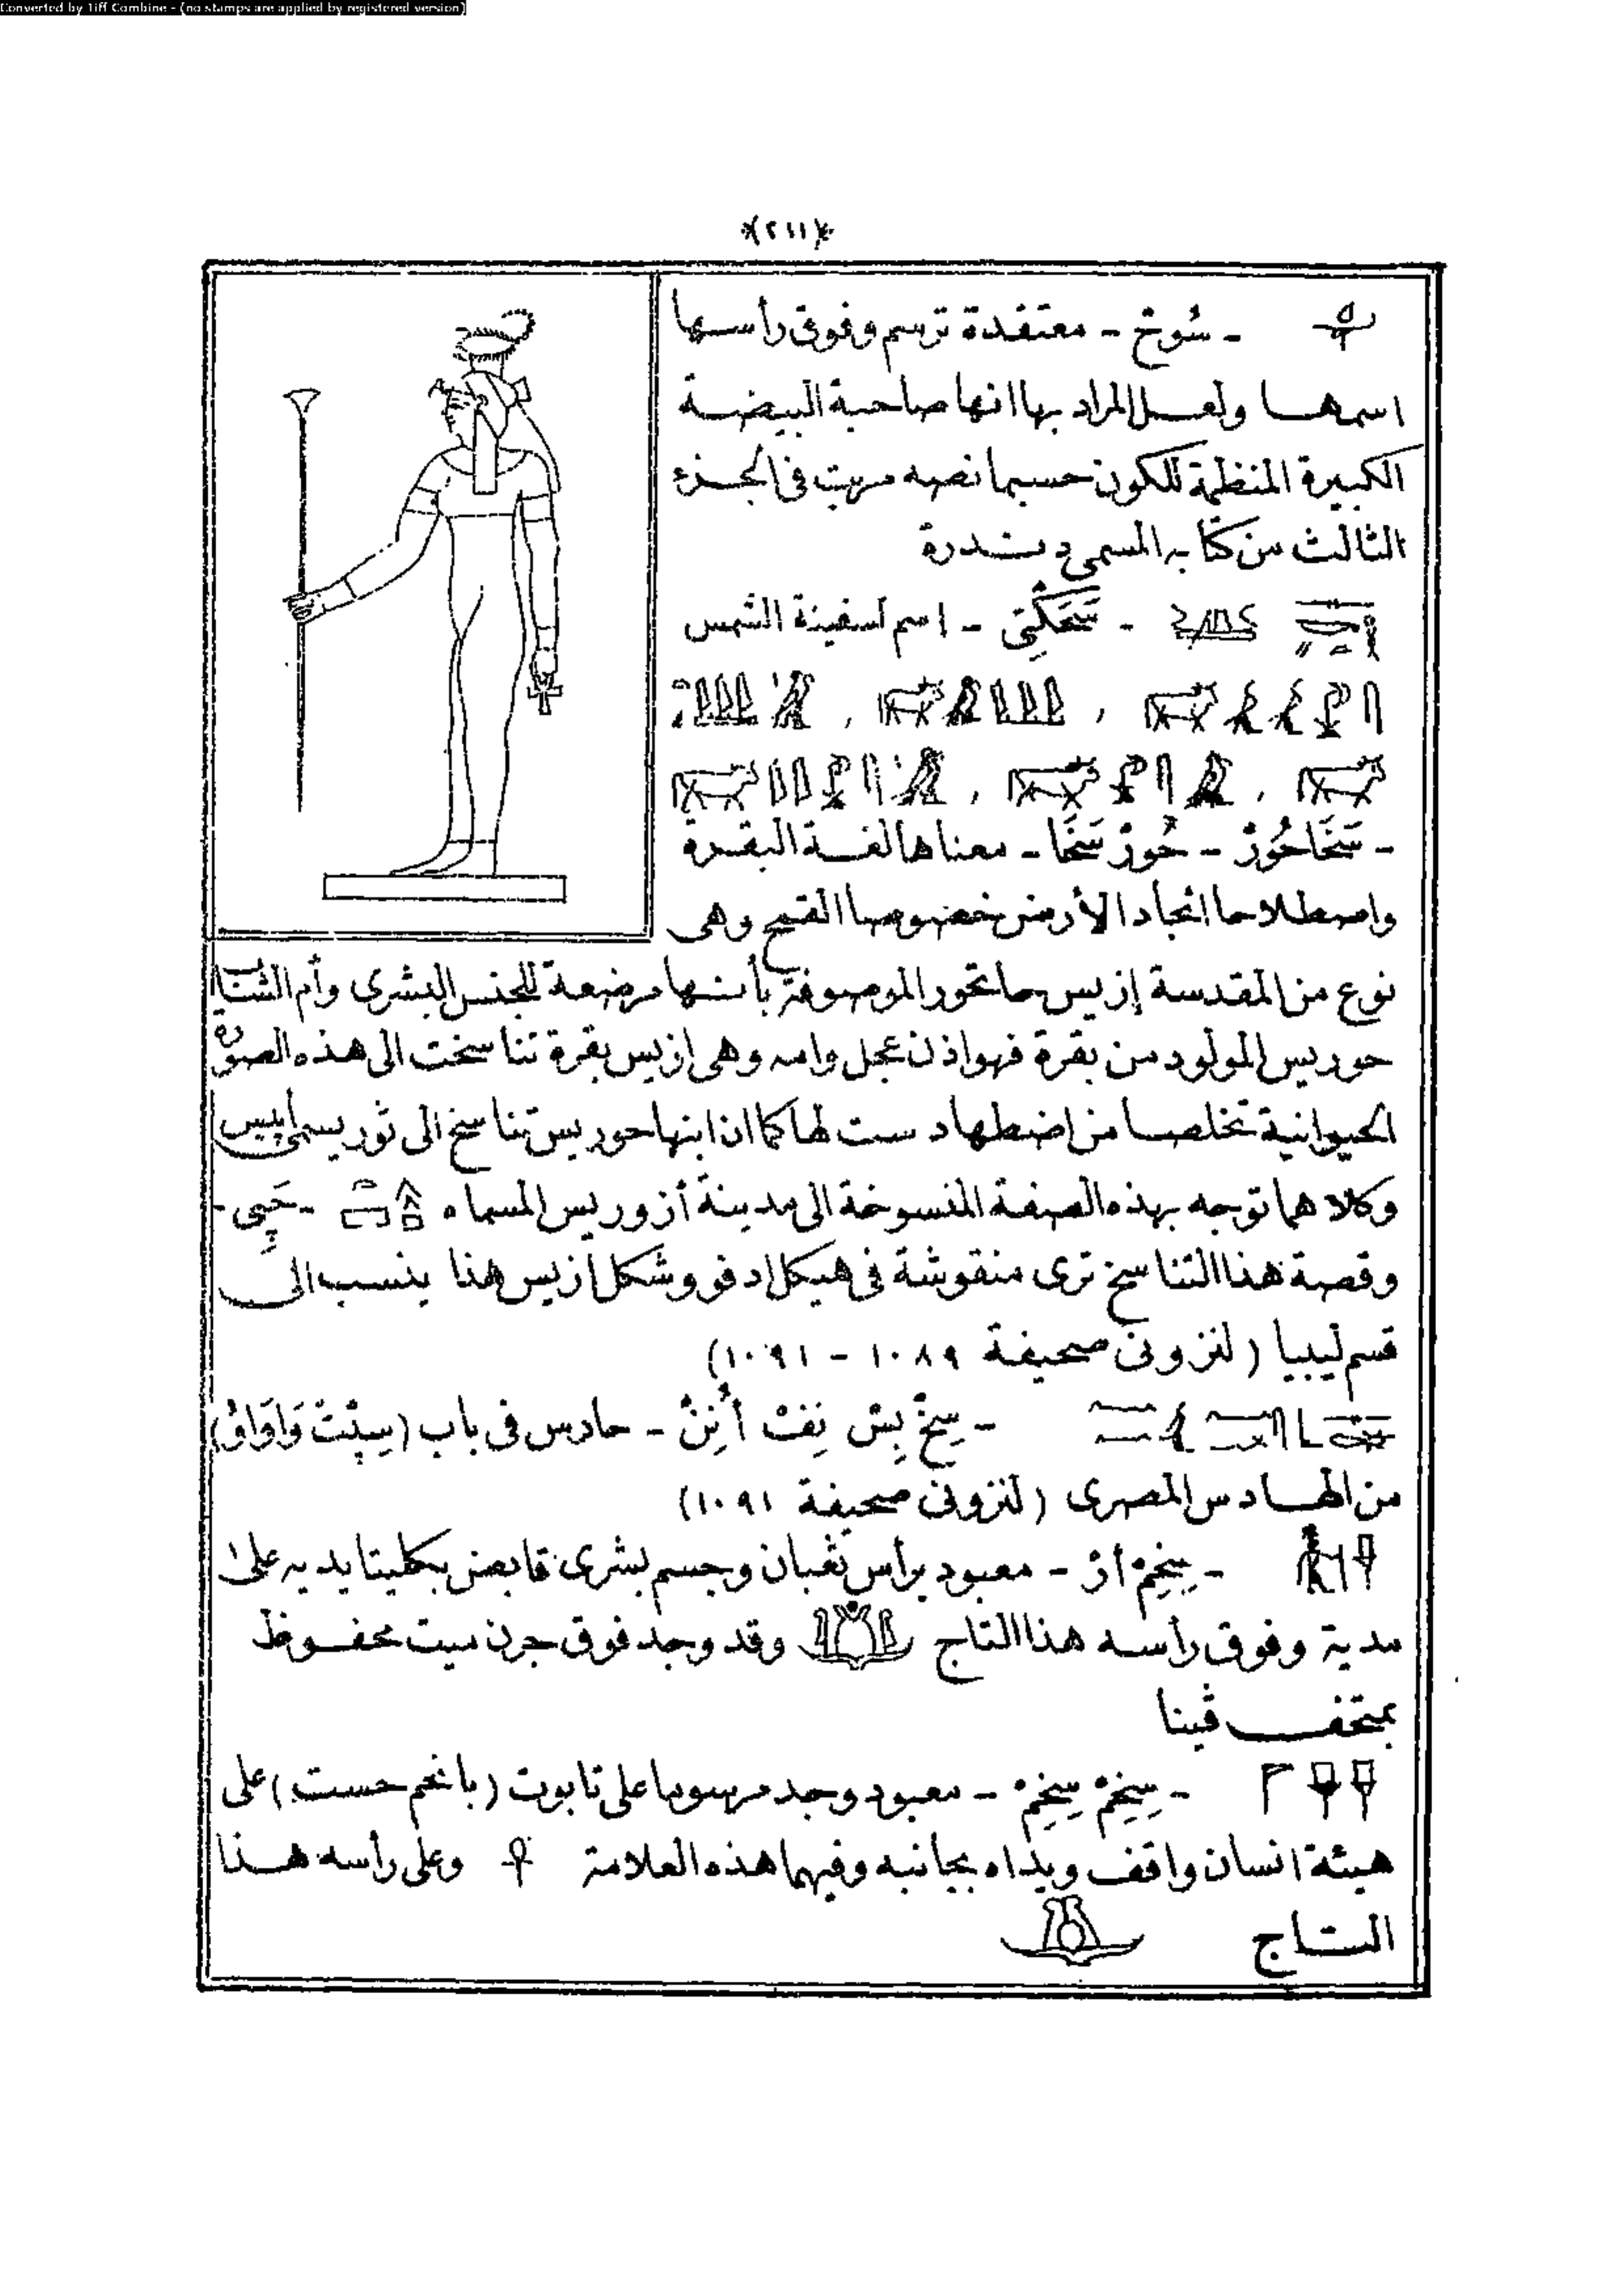 Converted by Tiff Combine - (no stamps are applied by registered version)
﴿٢١١﴾
- سُوخ - معتقدة ترسم وفوق رأسها
اسمها ولعل المراد بها انها صاحبة البيضة
الكبيرة المنظمة للكون حسبما نصه مريت فى الجزء
الثالث من كتابه المسمى دندرة
- سَحَكْتِى - اسم لسفينة الشمس
- سَخَاحُورْ - حُورْسَخَا - معناها لغة البقرة
واصطلاحا اتحاد الأرض خصوصا القمح وهى
نوع من المقدسة إزيس حاتحور الموصوفة بأنها مرضعة للجنس البشرى وأم
حوريس المولود من بقرة فهو اذن عجل وامه وهى ازيس بقرة تناسخت الى هذه الصورة
الحيوانية تخلصا من اضطهاد ست لها كما ان ابنها حوريس تناسخ الى ثور يسمى أبيس
وكلاهما توجه بهذه الصفة المنسوخة الى مدينة أزوريس المسماه - حَپِى -
وقصة هذا التناسخ ترى منقوشة فى هيكل ادفو وشكل ازيس هذا ينسب الى
قسم ليبيا (لنزونى صحيفة ١٠٨٩ - ١٠٩١)
- سِخْ بِسْ نِفْتْ أُنِنْ - حادس فى باب (سِپْتْ وَاوَاوْ)
من الهادس المصرى (لنزونى صحيفة ١٠٩١)
- سِخِمْ أرْ - معبود برأس ثعبان وجسم بشرى قابض بكليتا يديه على
مدية وفوق رأسه هذا التاج وقد وجد فوق جرن ميت محفوظ
بمتحف ڤينا
- سِخِمْ سِخِمْ - معبود وجد مرسوما على تابوت (بانحم حست) على
هيئة انسان واقف ويداه بجانبه وفيهما هذه العلامة وعلى رأسه هذا
التاج